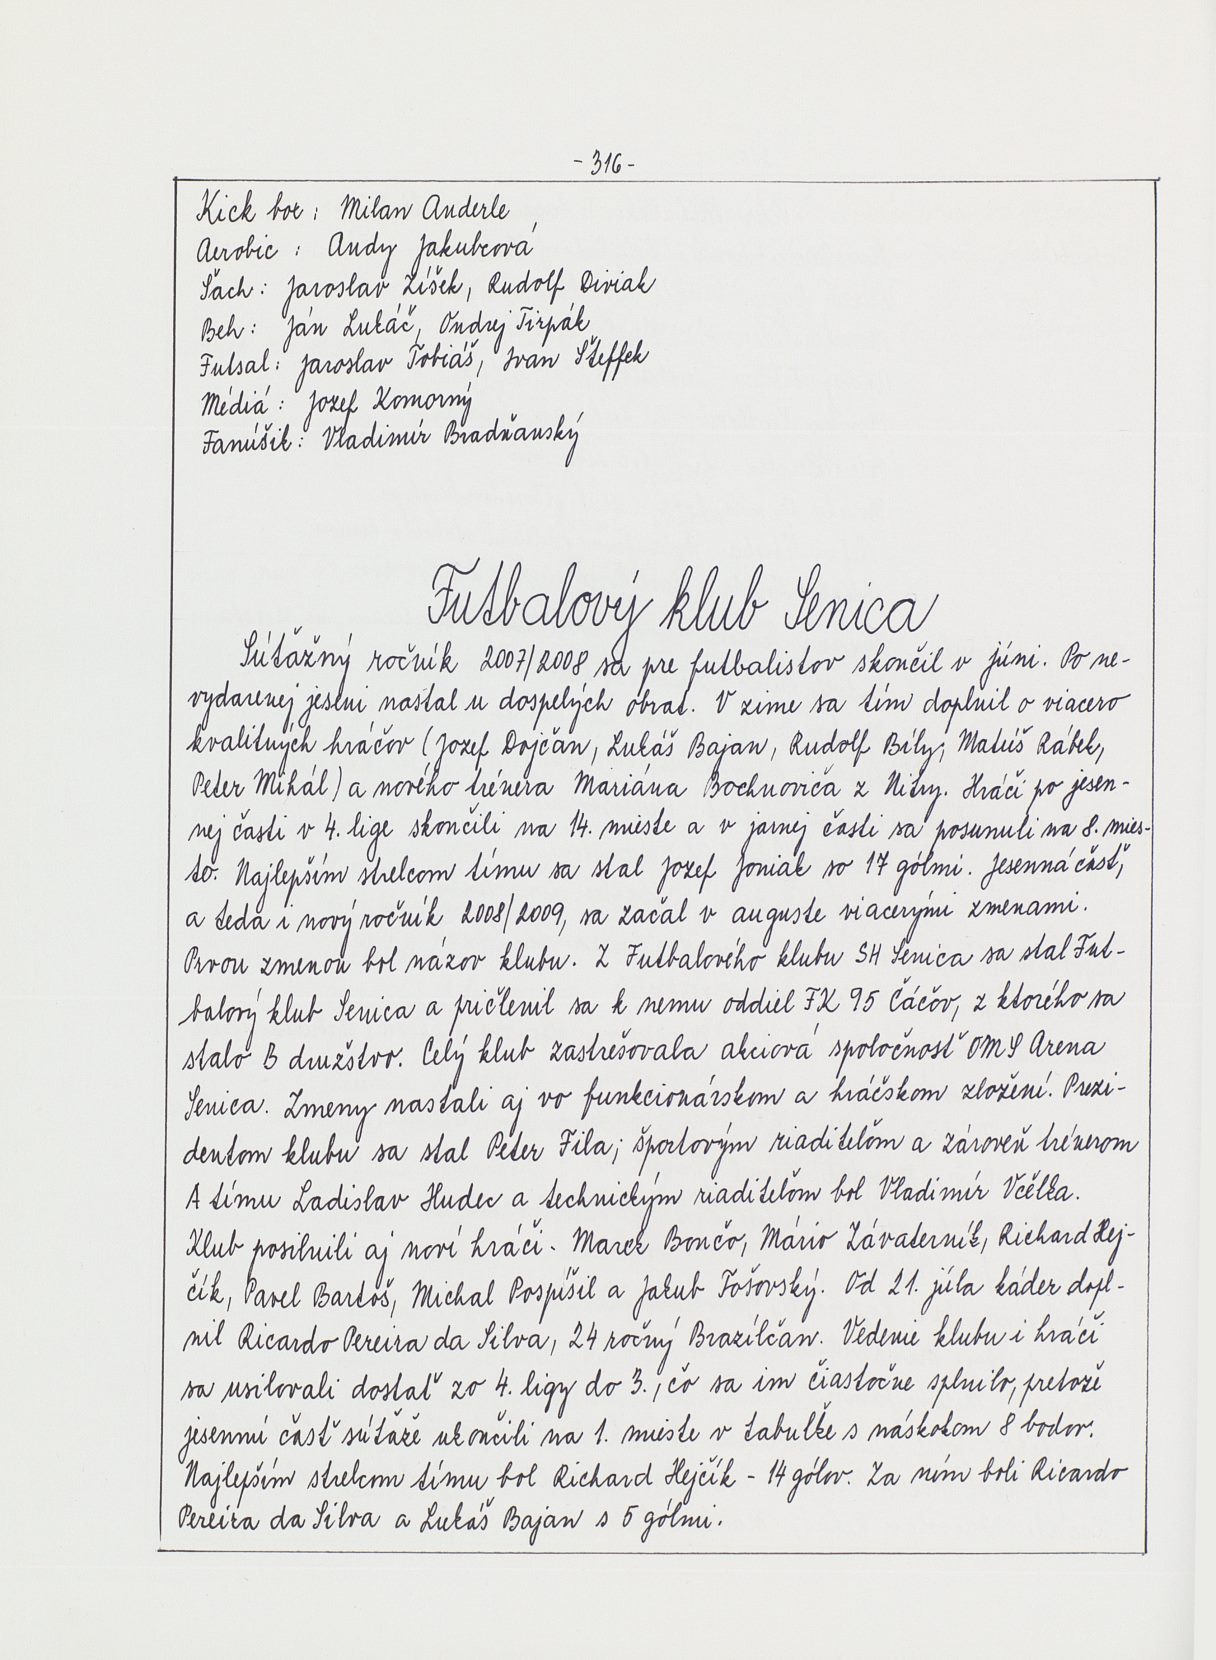 - 316 -
Kick box : Milan Anderle
Aerobic : Andy Jakubcová
Šach : Jaroslav Zíšek, Rudolf Diviak
Beh : Ján Lukáč, Ondrej Tirpák
Futsal : Jaroslav Tobiáš, Ivan Šteffek
Médiá : Jozef Komorný
Fanúšik : Vladimír Bradňanský
Futbalový klub Senica
Súťažný ročník 2007/2008 sa pre futbalistov skončil v júni. Po ne-
vydarenej jeseni nastal u dospelých obrat. V zime sa tím doplnil o viacero
kvalitných hráčov (Jozef Dojčan, Lukáš Bajan, Rudolf Bíly, Matúš Rábek,
Peter Mihál) a nového trénera Mariána Bochnoviča z Nitry. Hráči po jesen-
nej časti v 4. lige skončili na 14. mieste a v jarnej časti sa posunuli na 8. mies-
to. Najlepším strelcom tímu sa stal Jozef Joniak so 17 gólmi. Jesenná časť,
a teda i nový ročník 2008/2009, sa začal v auguste viacerými zmenami.
Prvou zmenou bol názov klubu. Z Futbalového klubu SH Senica sa stal Fut-
balový klub Senica a pričlenil sa k nemu oddiel FK 95 Čáčov, z ktorého sa
stalo B družstvo. Celý klub zastrešovala akciová spoločnosť OMS Arena
Senica. Zmeny nastali aj vo funkcionárskom a hráčskom zložení. Prezi-
dentom klubu sa stal Peter Fila; športovým riaditeľom a zároveň trénerom
A tímu Ladislav Hudec a technickým riaditeľom bol Vladimír Včélka.
Klub posilnili aj noví hráči - Marek Bončo, Mário Závaterník, Richard Hej-
čík, Pavel Bartoš, Michal Pospíšil a Jakub Fošovský. Od 21. júla káder dopl-
nil Ricardo Pereira da Silva, 24 ročný Brazílčan. Vedenie klubu i hráči
sa usilovali dostať zo 4. ligy do 3., čo sa im čiastočne splnilo, pretože
jesennú časť súťaže ukončili na 1. mieste v tabuľke s náskokom 8 bodov.
Najlepším strelcom tímu bol Richard Hejčík - 14 gólov. Za ním boli Ricardo
Pereira da Silva a Lukáš Bajan s 5 gólmi.